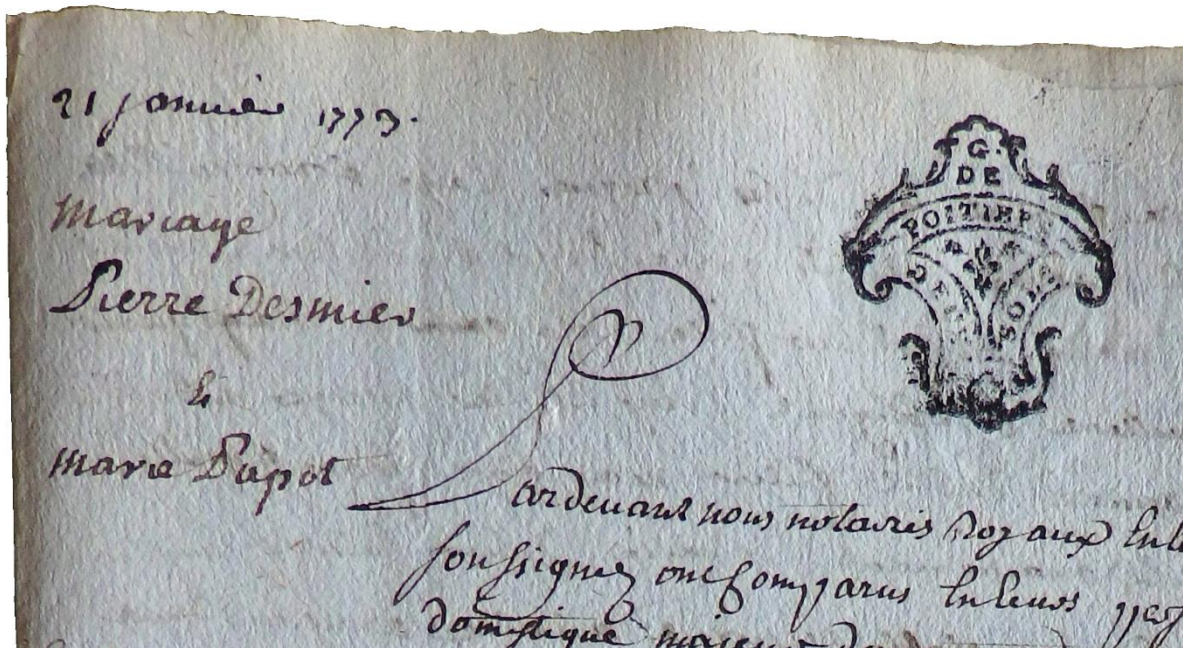 21 janvier 1773.
mariage
Pierre Desmier
&
marie Papot
G.
DE
POITIERS
DEUX SOLS
Pardevant nous notaires Royaux
soussignez ont Comparus En leurs
domestique